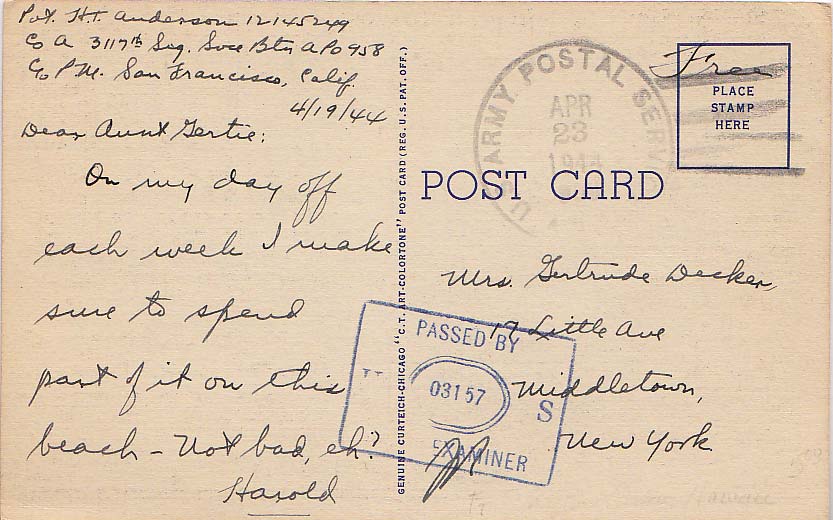 Pvt. H.T. Anderson 12145249
Co A 3117th Sig. Svce Btn APO 958
c/o P.M. San Francisco, Calif.
4/19/44
Dear Aunt Gertie:
On my day off
each week I make
sure to spend
part of it on this
beach - Not bad, eh?
Harold
GENUINE CURTEICH-CHICAGO "C.T. ART-COLORTONE" POST CARD (REG. U.S. PAT. OFF.)
U.S. ARMY POSTAL SERV
APR
23
1944
Free
PLACE
STAMP
HERE
POST CARD
Mrs. Gertrude Decker,
17 Little Ave
Middletown,
New York.
PASSED BY
03157
S
EXAMINER